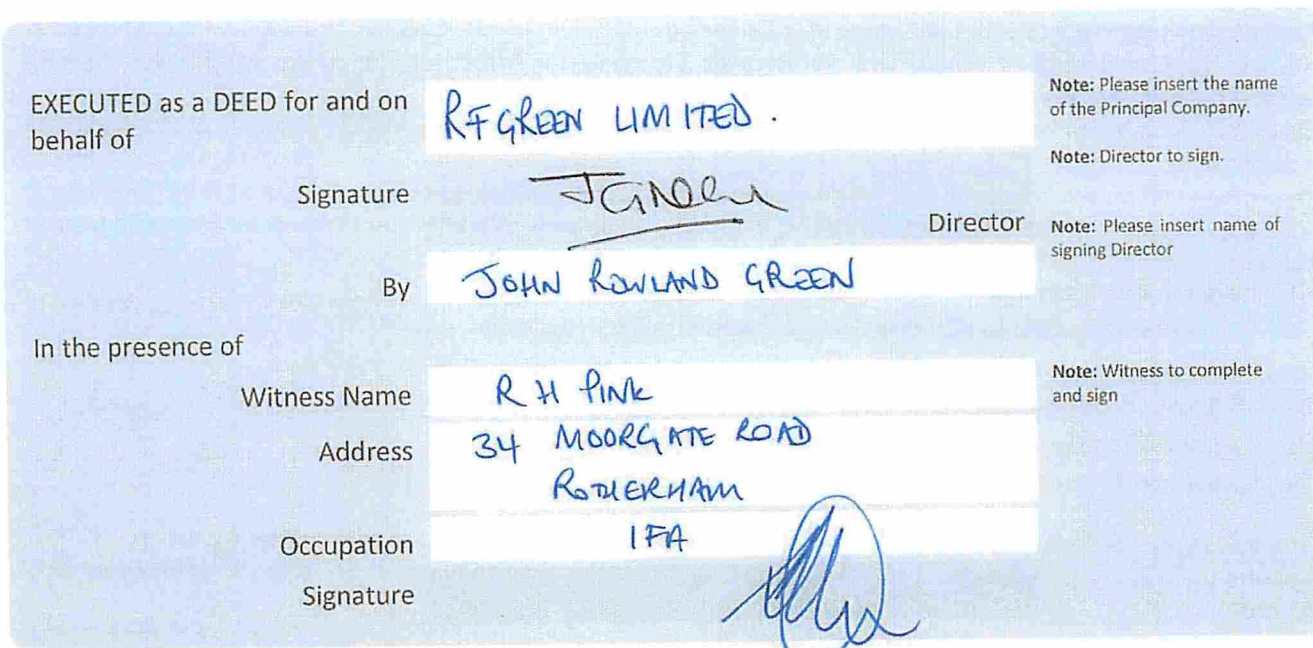 EXECUTED as a DEED for and on
behalf of
RFGREEN LIMITED.
Note: Please insert the name
of the Principal Company.
Note: Director to sign.
Signature
JGreen
Director
Note: Please insert name of
signing Director
By
JOHN ROWLAND GREEN
In the presence of
Witness Name
R H PINK
Note: Witness to complete
and sign
Address
34 MOORGATE ROAD
ROTHERHAM
Occupation
IFA
Signature